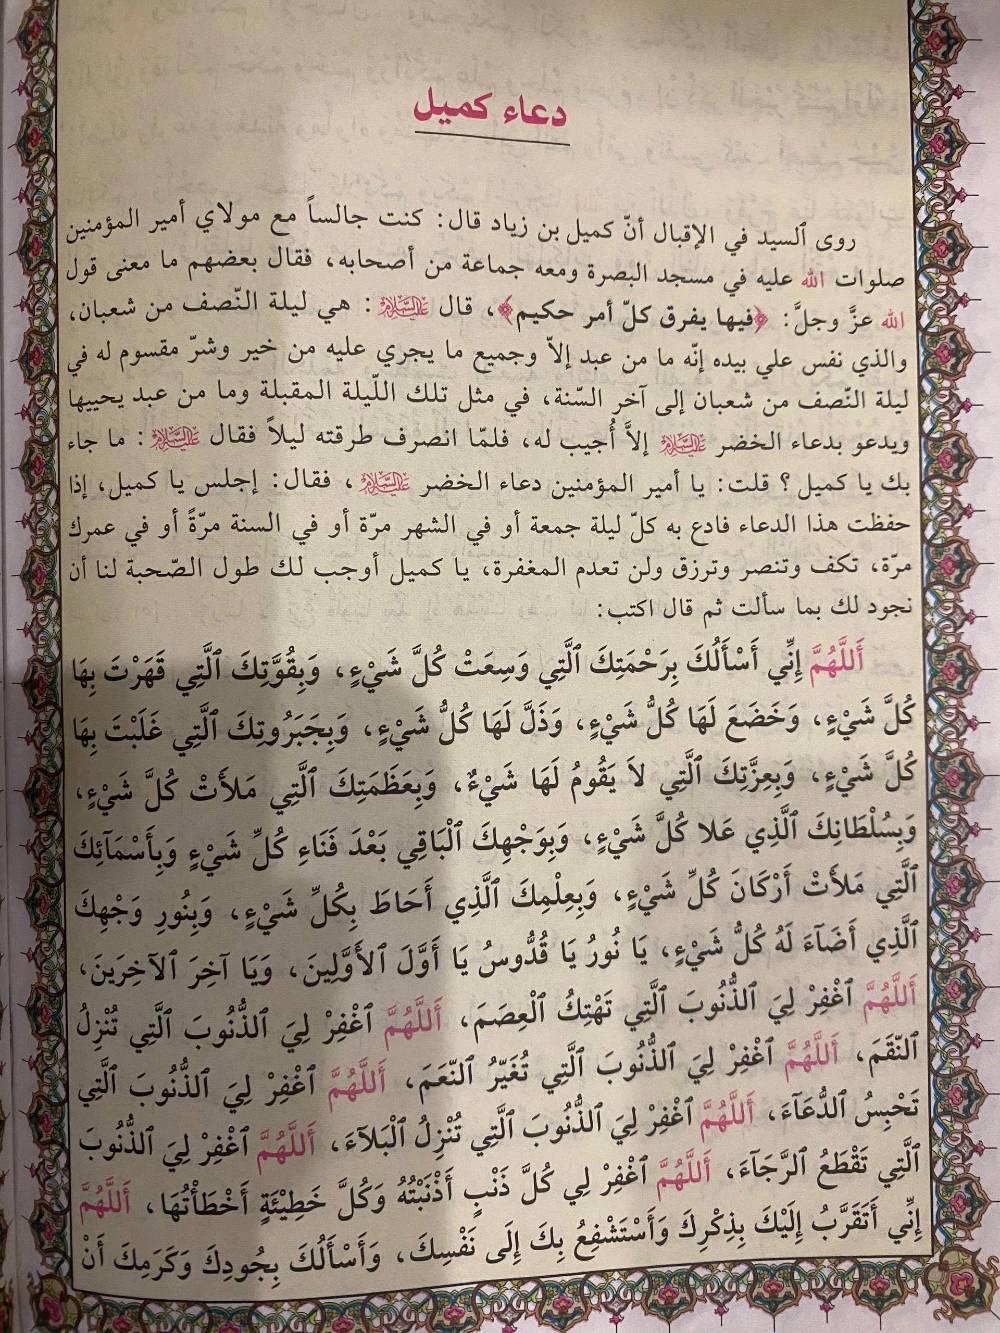 دعاء كميل
روى ٱلسيد في الإقبال أنّ كميل بن زياد قال: كنت جالساً مع مولاي أمير المؤمنين
صلوات الله عليه في مسجد البصرة ومعه جماعة من أصحابه، فقال بعضهم ما معنى قول
الله عزَّ وجلَّ: ﴿فيها يفرق كلّ أمر حكيم﴾، قال عليه السلام: هي ليلة النّصف من شعبان،
والذي نفس علي بيده إنّه ما من عبد إلاّ وجميع ما يجري عليه من خير وشرّ مقسوم له في
ليلة النّصف من شعبان إلى آخر السّنة، في مثل تلك اللّيلة المقبلة وما من عبد يحييها
ويدعو بدعاء الخضر عليه السلام إلاَّ أُجيب له، فلمّا انصرف طرقته ليلاً فقال عليه السلام: ما جاء
بك يا كميل؟ قلت: يا أمير المؤمنين دعاء الخضر عليه السلام، فقال: إجلس يا كميل، إذا
حفظت هذا الدعاء فادع به كلّ ليلة جمعة أو في الشهر مرّة أو في السنة مرّةً أو في عمرك
مرّة، تكف وتنصر وترزق ولن تعدم المغفرة، يا كميل أوجب لك طول الصّحبة لنا أن
نجود لك بما سألت ثم قال اكتب:
أَللَّهُمَّ إِنِّي أَسْأَلُكَ بِرَحْمَتِكَ ٱلَّتِي وَسِعَتْ كُلَّ شَيْءٍ، وَبِقُوَّتِكَ ٱلَّتِي قَهَرْتَ بِهَا
كُلَّ شَيْءٍ، وَخَضَعَ لَهَا كُلُّ شَيْءٍ، وَذَلَّ لَهَا كُلُّ شَيْءٍ، وَبِجَبَرُوتِكَ ٱلَّتِي غَلَبْتَ بِهَا
كُلَّ شَيْءٍ، وَبِعِزَّتِكَ ٱلَّتِي لاَ يَقُومُ لَهَا شَيْءٌ، وَبِعَظَمَتِكَ ٱلَّتِي مَلأَتْ كُلَّ شَيْءٍ،
وَبِسُلْطَانِكَ ٱلَّذِي عَلا كُلَّ شَيْءٍ، وَبِوَجْهِكَ ٱلْبَاقِي بَعْدَ فَنَاءِ كُلِّ شَيْءٍ وَبِأَسْمَآئِكَ
ٱلَّتِي مَلأَتْ أَرْكَانَ كُلِّ شَيْءٍ، وَبِعِلْمِكَ ٱلَّذِي أَحَاطَ بِكُلِّ شَيْءٍ، وَبِنُورِ وَجْهِكَ
ٱلَّذِي أَضَآءَ لَهُ كُلُّ شَيْءٍ، يَا نُورُ يَا قُدُّوسُ يَا أَوَّلَ ٱلأَوَّلِينَ، وَيَا آخِرَ ٱلآخِرِينَ،
أَللَّهُمَّ ٱغْفِرْ لِيَ ٱلذُّنُوبَ ٱلَّتِي تَهْتِكُ ٱلْعِصَمَ، أَللَّهُمَّ ٱغْفِرْ لِيَ ٱلذُّنُوبَ ٱلَّتِي تُنْزِلُ
ٱلنِّقَمَ، أَللَّهُمَّ ٱغْفِرْ لِيَ ٱلذُّنُوبَ ٱلَّتِي تُغَيِّرُ ٱلنِّعَمَ، أَللَّهُمَّ ٱغْفِرْ لِيَ ٱلذُّنُوبَ ٱلَّتِي
تَحْبِسُ ٱلدُّعَآءَ، أَللَّهُمَّ ٱغْفِرْ لِيَ ٱلذُّنُوبَ ٱلَّتِي تُنْزِلُ ٱلْبَلآءَ، أَللَّهُمَّ ٱغْفِرْ لِيَ ٱلذُّنُوبَ
ٱلَّتِي تَقْطَعُ ٱلرَّجَآءَ، أَللَّهُمَّ ٱغْفِرْ لِي كُلَّ ذَنْبٍ أَذْنَبْتُهُ وَكُلَّ خَطِيْئَةٍ أَخْطَأْتُهَا، أَللَّهُمَّ
إِنِّي أَتَقَرَّبُ إِلَيْكَ بِذِكْرِكَ وَأَسْتَشْفِعُ بِكَ إِلَى نَفْسِكَ، وَأَسْأَلُكَ بِجُودِكَ وَكَرَمِكَ أَنْ